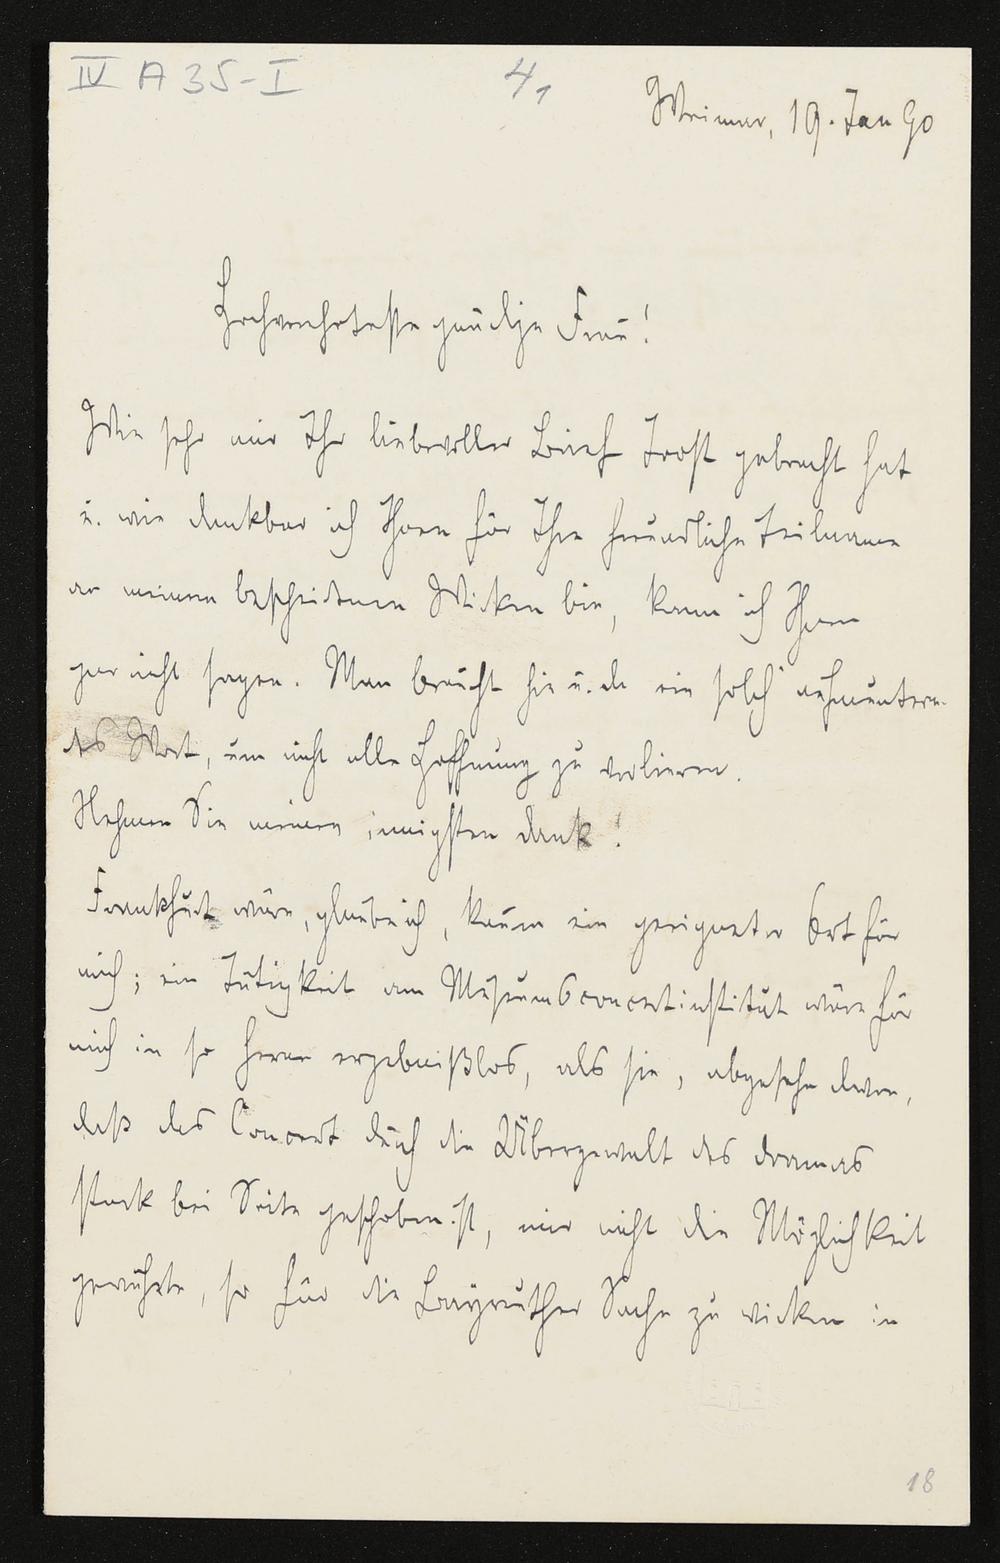 IV A 35-I
4,1
Weimar, 19. Jan 90
Hochverehrteste gnädige Frau!
Wie sehr mir Ihr liebevoller Brief Trost gebracht hat
u. wie dankbar ich Ihnen für Ihre freundliche Teilname
an meinem bescheidenen Wirken bin, kann ich Ihnen
gar nicht sagen. Man braucht hie u. da ein solch' aufmuntern-
des Wort, um nicht alle Hoffnung zu verlieren.
Nehmen Sie meinen innigsten Dank!
Frankfurt wäre, glaube ich, kaum ein geeigneter Ort für
mich; ein Tätigkeit am Museumsconcertinstitut wäre für
mich in so ferne ergebnißlos, als sie, abgesehn davon,
daß das Concert durch die Übergewalt des Dramas
stark bei Seite geschoben ist, mir nicht die Möglichkeit
gewährte, so für die Bayreuther Sache zu wirken in
18